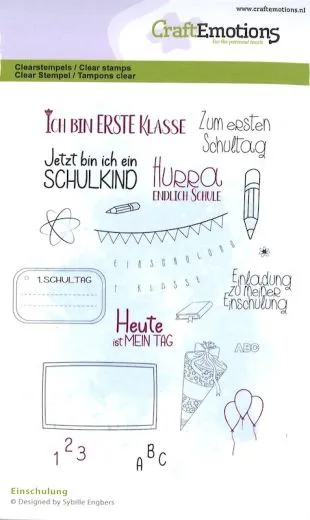 www.craftemotions.nl
CraftEmotions
for the personal touch
Clearstempels / Clear stamps
Clear Stempel / Tampons clear
ICH BIN ERSTE KLASSE
Zum ersten
Schultag
Jetzt bin ich ein
SCHULKIND
HURRA
ENDLICH SCHULE
EINSCHULUNG
1. KLASSE
1. SCHULTAG
Einladung
zu meiner
Einschulung
Heute
ist MEIN TAG
ABC
1 2 3
A B C
Einschulung
© Designed by Sybille Engbers